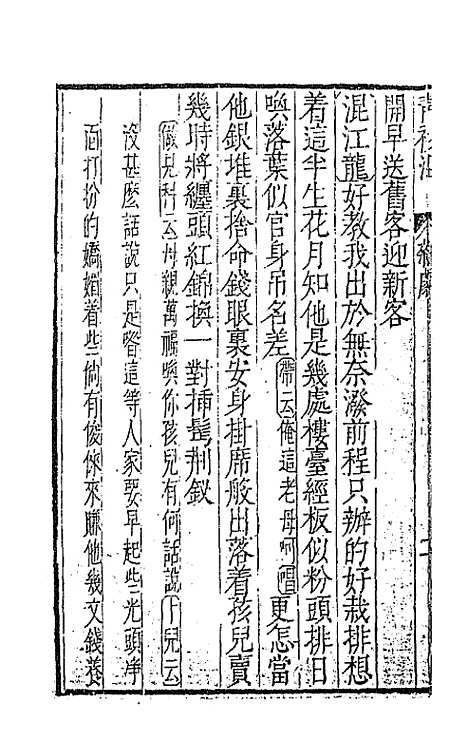 開早送舊客迎新客
混江龍好教我出於無奈潑前程只辦的好栽排想
着這半生花月知他是幾處樓臺經板似粉頭排日
喚落葉似官身吊名差帶云俺這老母呵唱更怎當
他銀堆裏捨命錢眼裏安身掛席般出落着孩兒賣
幾時將纏頭紅錦換一對插髩荆釵
做見科云母親萬福喚你孩兒有何話說卜兒云
沒甚麽話說只是喒這等人家要早起些光頭净
面打扮的嬌媚着些倘有俊俫來賺他幾文錢養